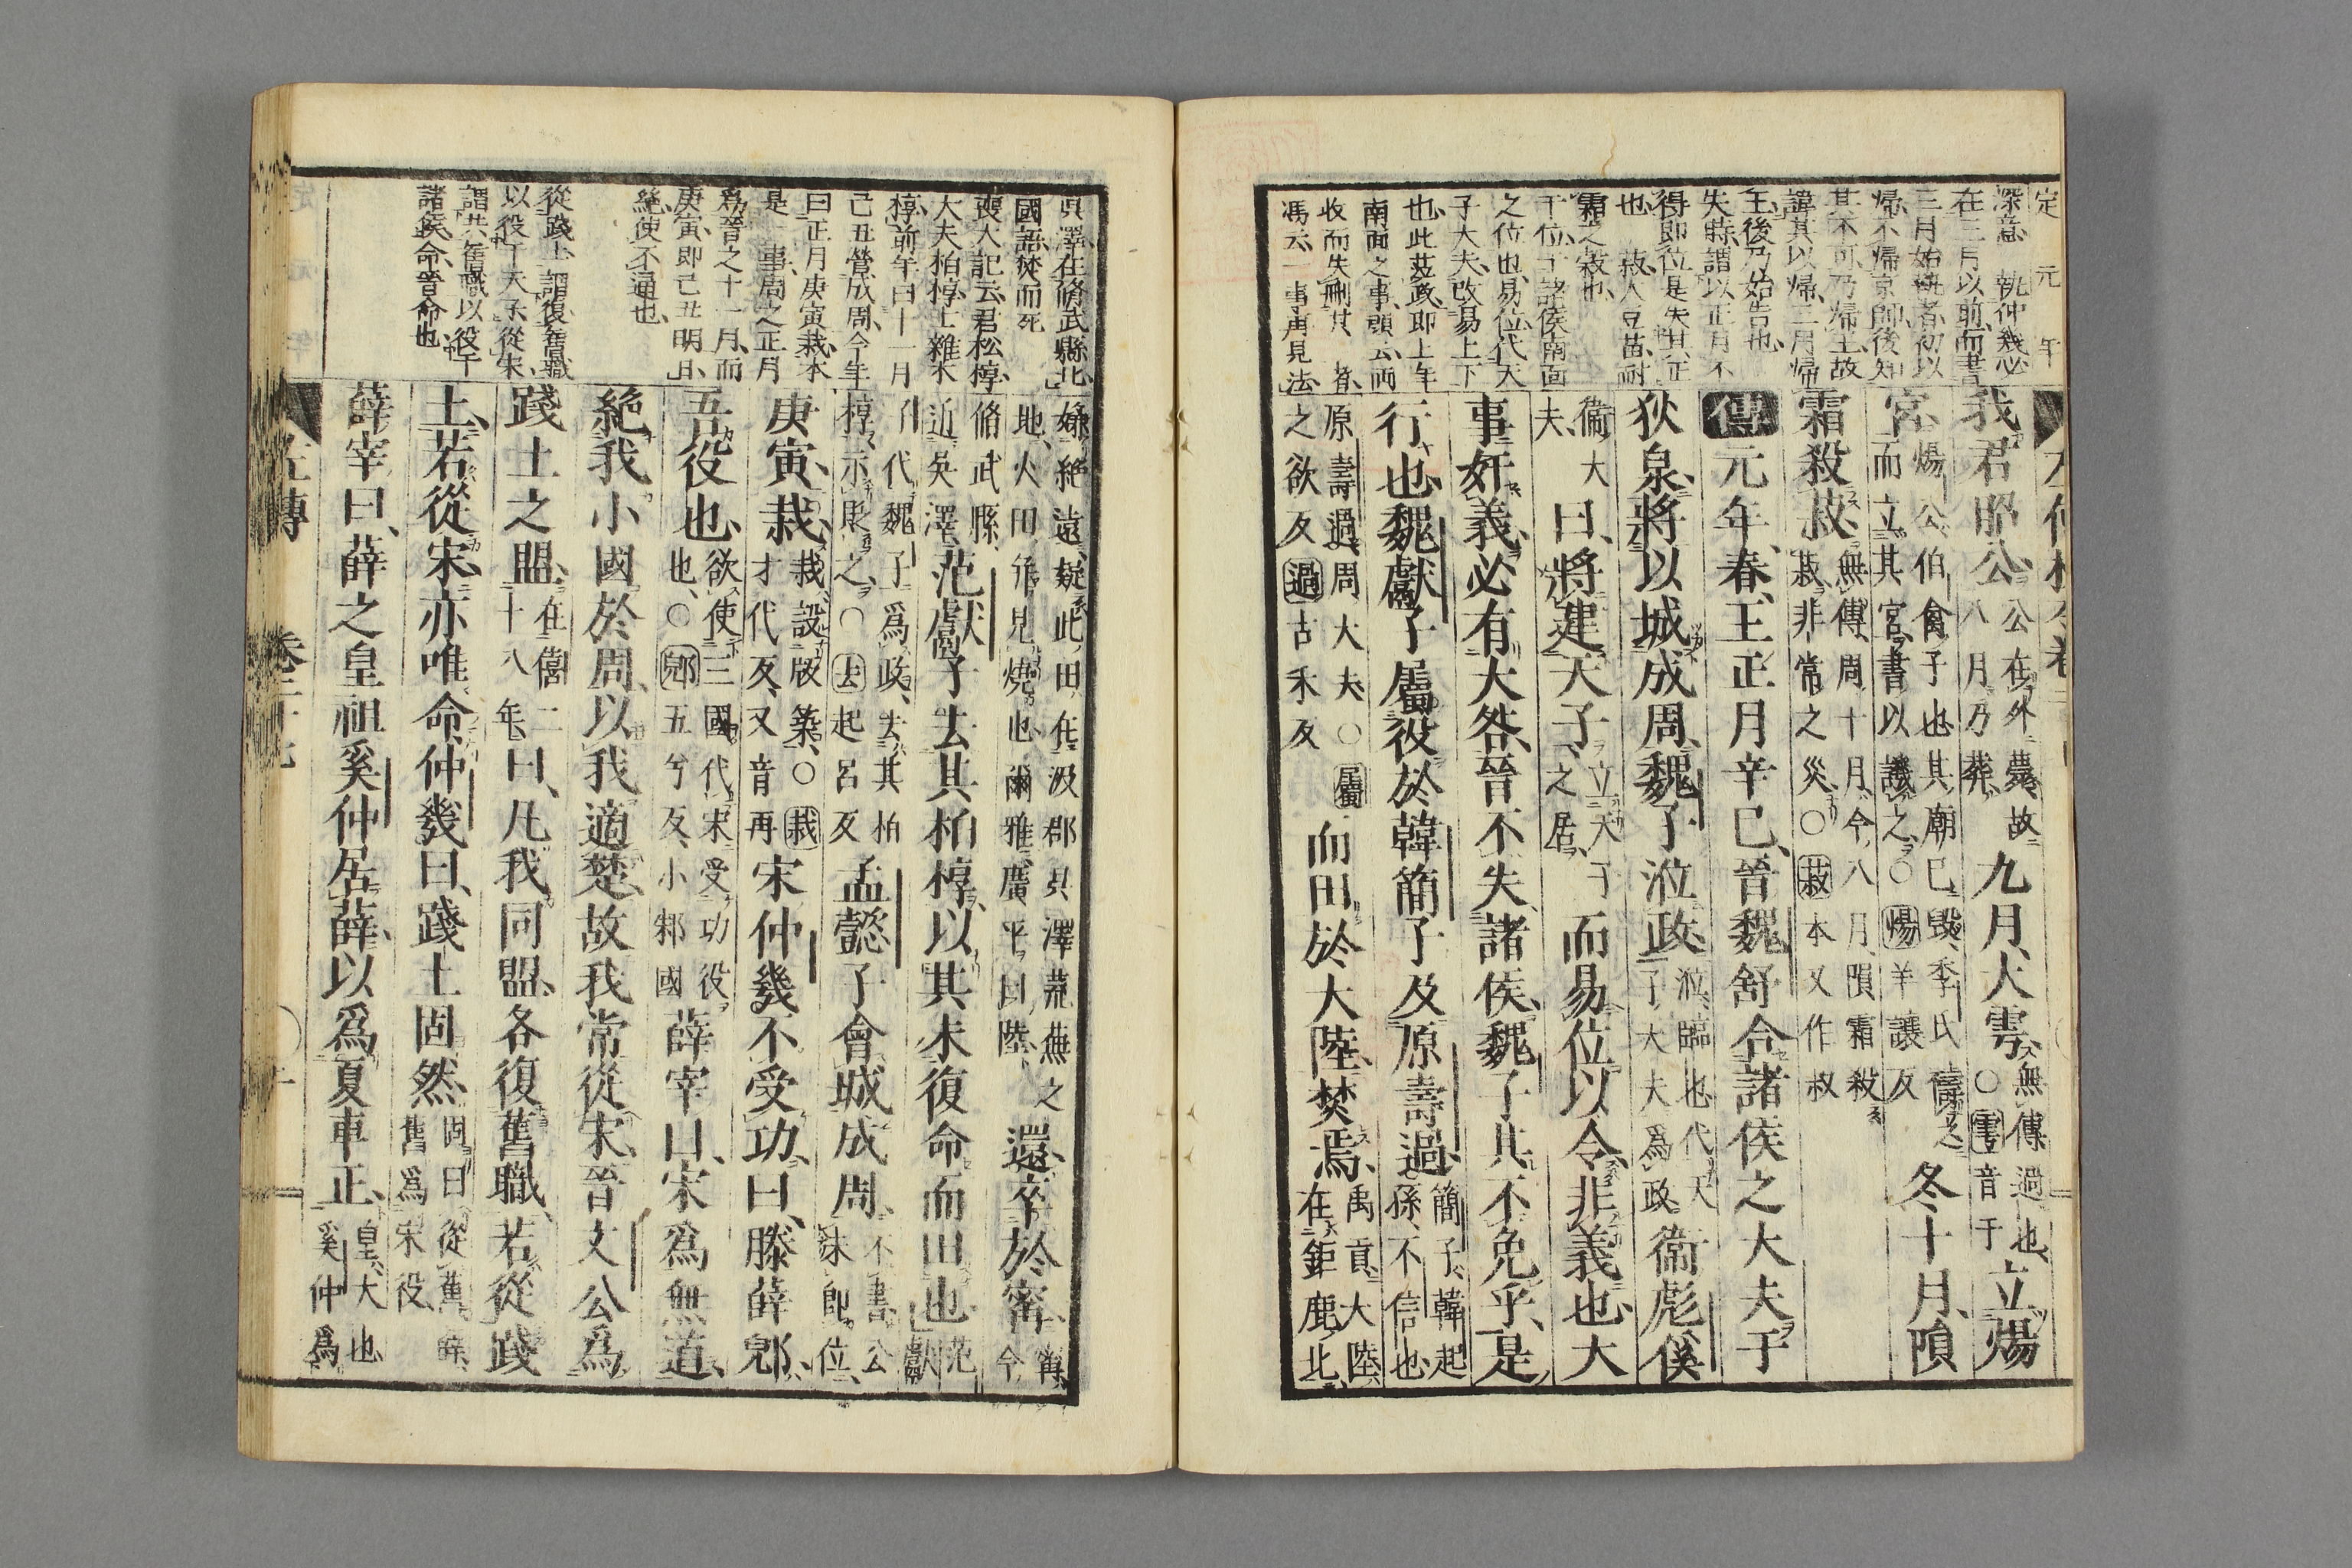 定 元 年
深意 執仲幾必
在三月以前而書
三月始執者初以
歸不歸京師後知
其不可乃歸王故
諱其以歸二月歸
王後乃始告也
失時謂以正月不
得即位是失其正
也 菽大豆苗耐
霜之穀也
干位干諸侯南面
之位也易位代天
子大夫改易上下
也此莅政即上年
南面之事頭云両
收而失刪其
馮云一事再見法
我君昭公公在外薨故八月乃葬九月大雩無傳過也○雩音于立煬
宮煬公伯禽子也其廟已毀季氏禱之而立其宮書以譏之○煬羊讓反冬十月隕
霜殺菽無傳周十月今八月隕霜殺菽非常之災○菽本又作叔
傳元年春王正月辛巳晉魏舒合諸侯之大夫于
狄泉將以城成周魏子涖政涖臨也代天子大夫爲政衞彪傒
衞大夫曰將建天子立天子之居而易位以令非義也大
事奸義必有大咎晉不失諸侯魏子其不免乎是
行也魏獻子屬役於韓簡子及原壽過簡子韓起孫不信也
原壽過周大夫○屬之欲反過古禾反而田於大陸焚焉禹貢大陸在鉅鹿北
嫌絶遠疑此田在汲郡吳澤荒蕪之地火田幷見燒也爾雅廣平曰陸還卒於甯甯今
脩武縣近吳澤范獻子去其柏椁以其未復命而田也范獻
子代魏子爲政去其柏椁示貶之○去起呂反孟懿子會城成周不書公未即位
庚寅栽栽設版築○栽才代反又音再宋仲幾不受功曰滕薛郳
吾役也欲使三國代宋受功役也○郳五兮反小邾國薛宰曰宋爲無道
絶我小國於周以我適楚故我常從宋晉文公爲
踐土之盟在僖二十八年曰凡我同盟各復舊職若從踐
土若從宋亦唯命仲幾曰踐土固然固曰從舊薛舊爲宋役
薛宰曰薛之皇祖奚仲居薛以爲夏車正皇大也奚仲爲
吳澤在脩武縣北
國語焚而死
喪大記云君松椁
大夫柏椁士雜木
椁 前年曰十一月
己丑營成周今年
曰正月庚寅栽本
是一事周之正月
爲晉之十一月而
庚寅即己丑明日
絶使不通也
從踐土謂復舊職
以役于天子從宋
謂共舊職以役于
諸侯命晉命也
左傳 卷二十七